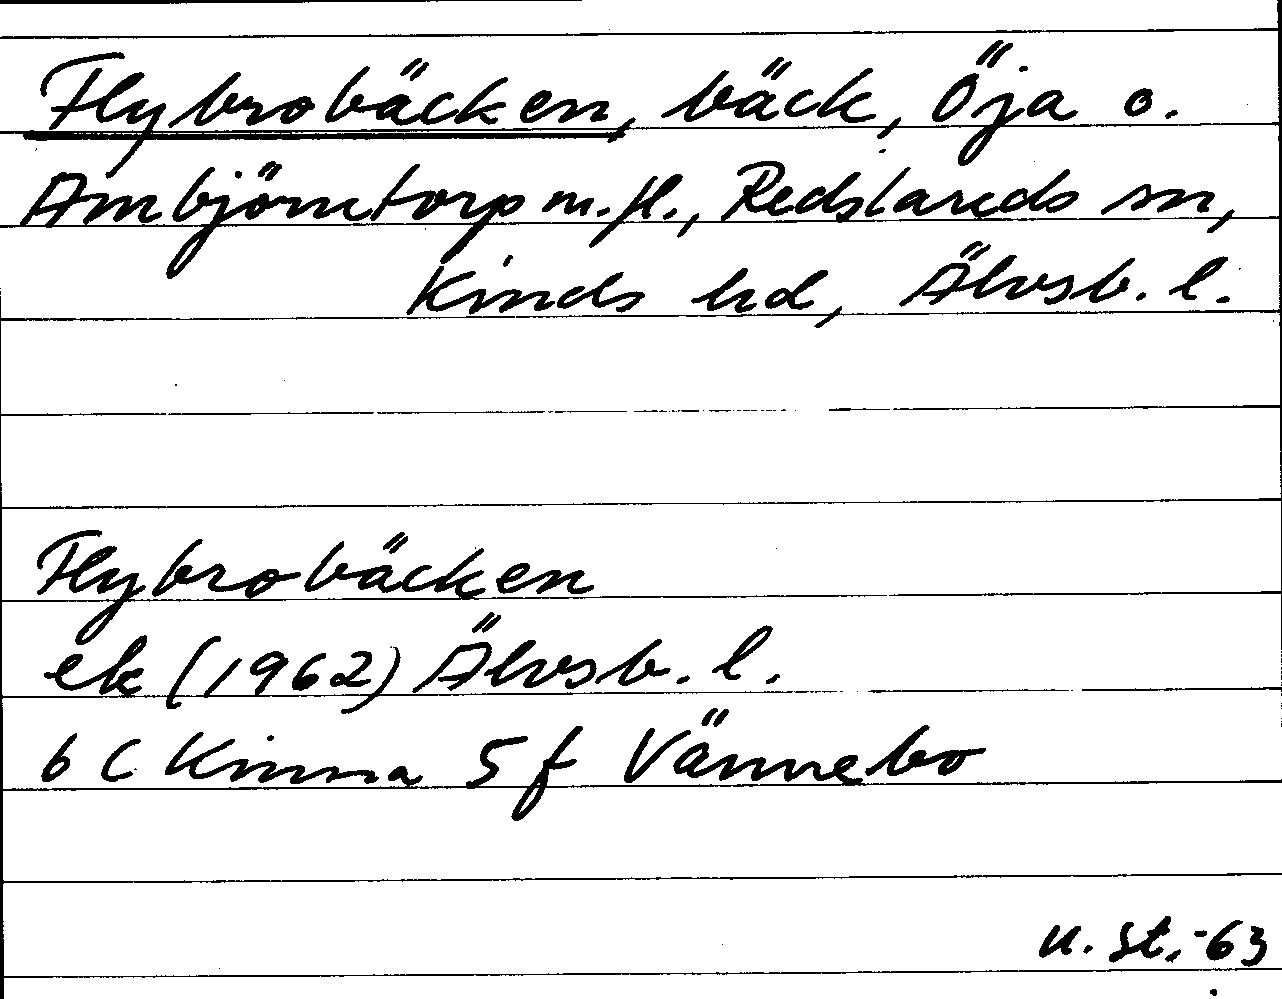 Flybrobäcken, bäck, Öja o.
Ambjörntorp m.fl., Redslareds sn,
Kinds hd, Älvsb. l.
Flybrobäcken
ek (1962) Älvsb. l.
6 C Kinna 5 f Vännebo
U. St. -63